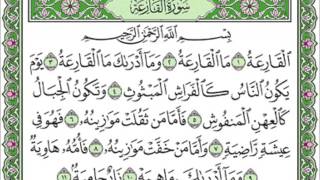 سُورَةُ القَارِعَةِ
بِسْمِ اللَّهِ الرَّحْمَٰنِ الرَّحِيمِ
الْقَارِعَةُ ١ مَا الْقَارِعَةُ ٢ وَمَا أَدْرَاكَ مَا الْقَارِعَةُ ٣ يَوْمَ
يَكُونُ النَّاسُ كَالْفَرَاشِ الْمَبْثُوثِ ٤ وَتَكُونُ الْجِبَالُ
كَالْعِهْنِ الْمَنْفُوشِ ٥ فَأَمَّا مَنْ ثَقُلَتْ مَوَازِينُهُ ٦ فَهُوَ فِي
عِيشَةٍ رَاضِيَةٍ ٧ وَأَمَّا مَنْ خَفَّتْ مَوَازِينُهُ ٨ فَأُمُّهُ هَاوِيَةٌ
٩ وَمَا أَدْرَاكَ مَا هِيَهْ ١٠ نَارٌ حَامِيَةٌ ١١